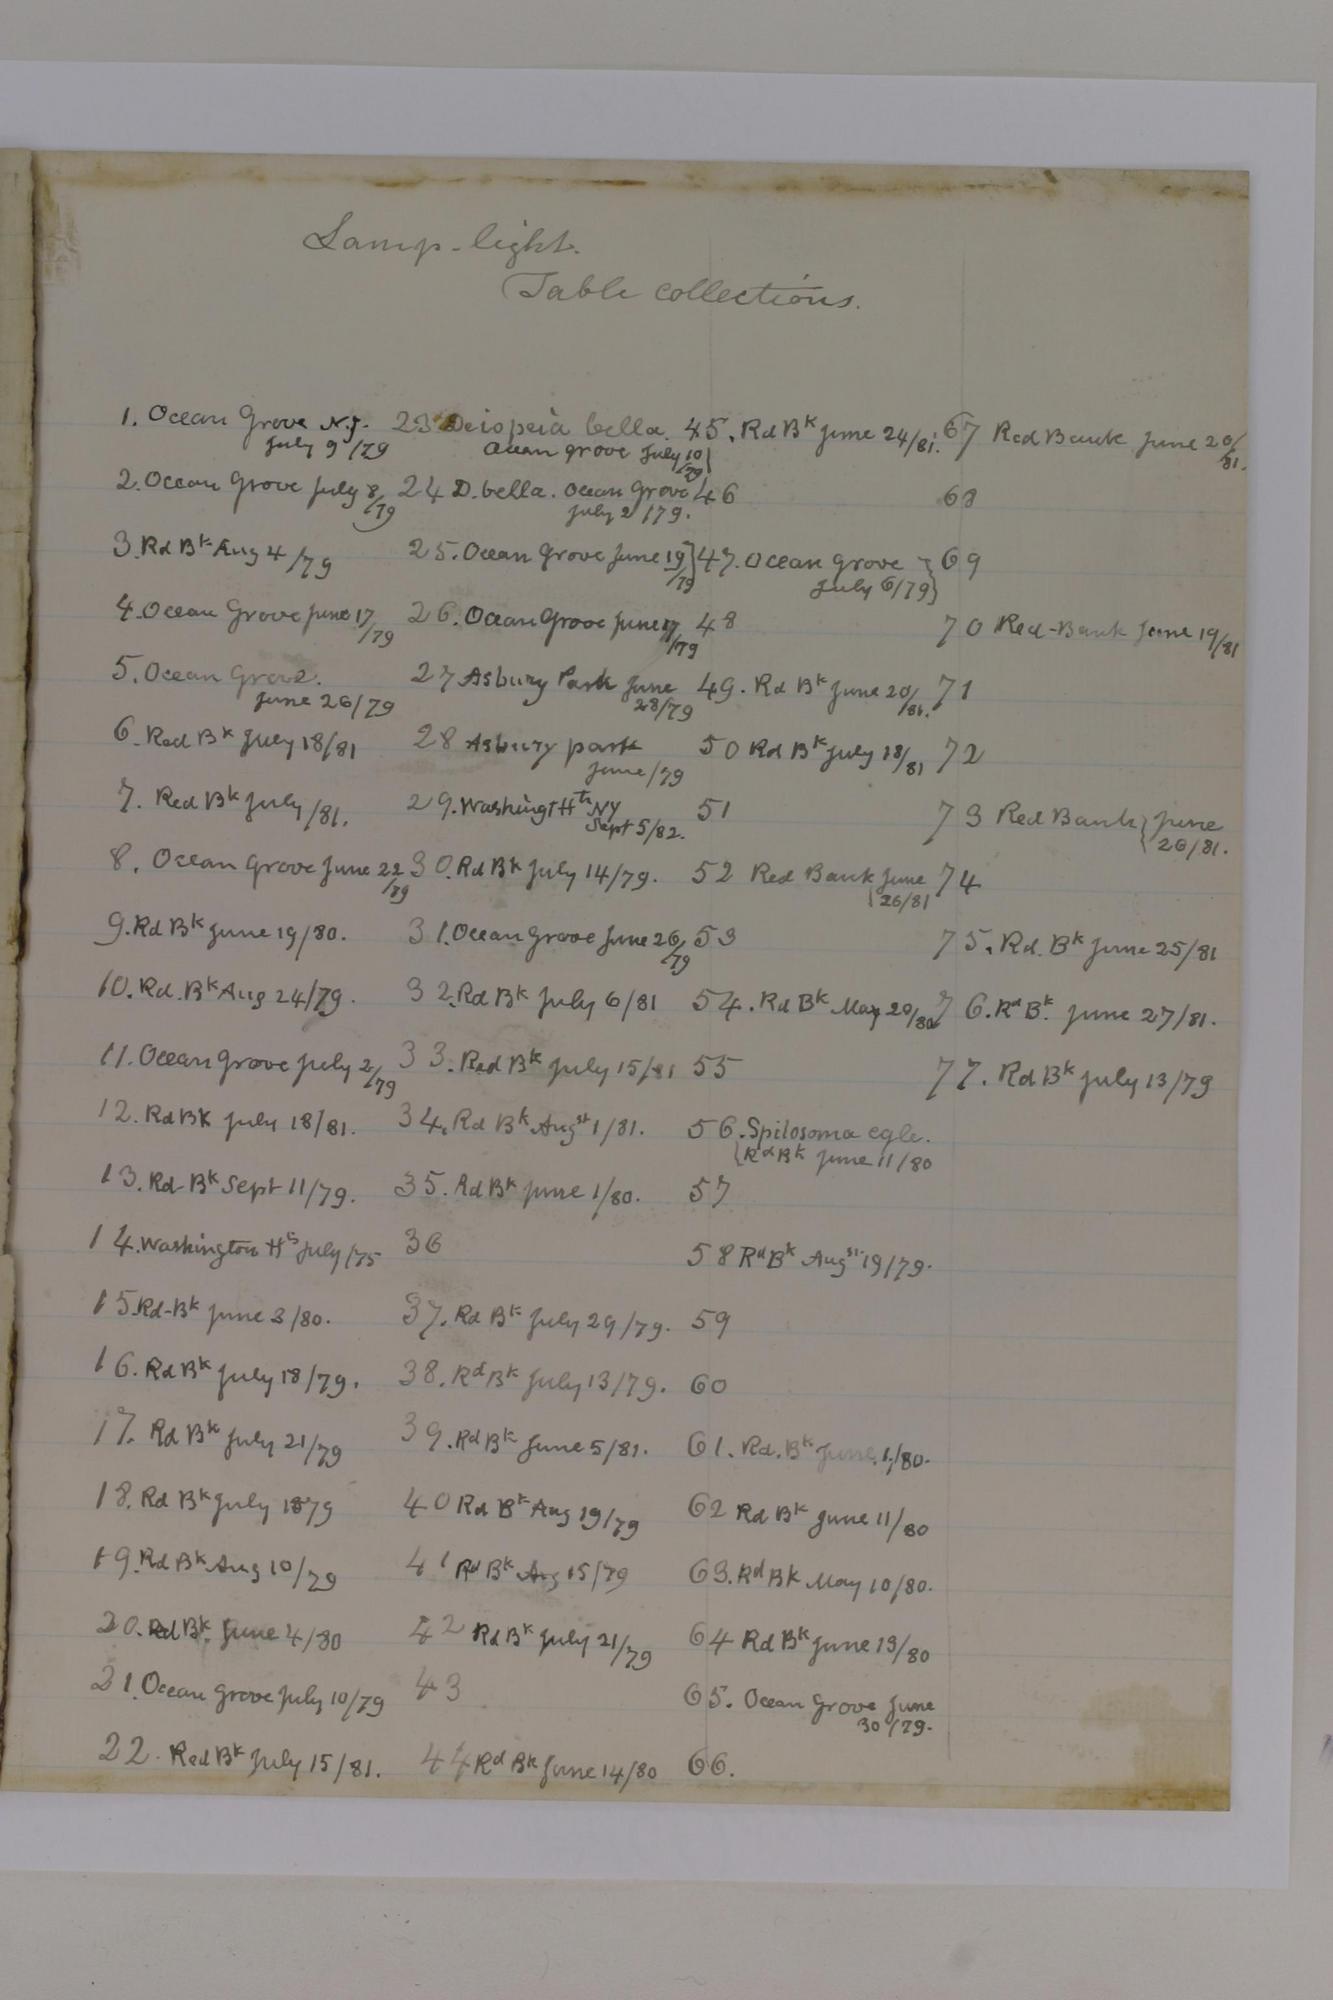 Lamp-light.
(Table collections.
1. Ocean Grove N.J.
July 9/79
2. Ocean Grove July 8
/79
3. Rd Bk Aug 4/79
4. Ocean Grove June 17
/79
5. Ocean Grove.
June 26/79
6. Red Bk July 18/81
7. Red Bk July /81.
8. Ocean Grove June 22
/79
9. Rd Bk June 19/80.
10. Rd. Bk Aug 24/79.
11. Ocean Grove July 2
/79
12. Rd Bk July 18/81.
13. Rd-Bk Sept 11/79.
14. Washington Hts July/75
15. Rd-Bk June 2/80.
16. Rd Bk July 18/79.
17. Rd Bk July 21/79
18. Rd Bk July 18 79
19. Rd Bk Aug 10/79
20. Rd Bk June 4/80
21. Ocean Grove July 10/79
22. Red Bk July 15/81.
23 Deiopeia bella.
Ocean Grove July 10
/79
24 D. bella. Ocean Grove
July 2/79.
25. Ocean Grove June 19
/79
26. Ocean Grove June 17
/79
27 Asbury Park June
28/79
28 Asbury park
June/79
29. Washingt Hts NY
Sept 5/82.
30. Rd Bk July 14/79.
31. Ocean Grove June 26,
/79
32. Rd Bk July 6/81
33. Red Bk July 15/81
34. Rd Bk Augst 1/81.
35. Rd Bk June 1/80.
36
37. Rd Bk July 29/79.
38. Rd Bk July 13/79.
39. Rd Bk June 5/81.
40 Rd Bk Aug 19/79
41 Rd Bk Aug 15/79
42 Rd Bk July 21/79
43
44 Rd Bk June 14/80
45. Rd Bk June 24/81.
46
47. Ocean Grove
July 6/79
48
49. Rd Bk June 20/
/81.
50 Rd Bk July 18/81
51
52 Red Bank June
26/81
53
54. Rd Bk May 20/80
55
56. Spilosoma egle.
Rd Bk June 11/80
57
58 Rd Bk Augst 19/79.
59
60
61. Rd. Bk June 1/80.
62 Rd Bk June 11/80
63. Rd Bk May 10/80.
64 Rd Bk June 13/80
65. Ocean Grove June
30/79.
66.
67 Red Bank June 20/
81.
68
69
70 Red-Bank June 19/81
71
72
73 Red Bank June
26/81.
74
75. Rd. Bk June 25/81
76. Rd Bk. June 27/81.
77. Rd Bk July 13/79